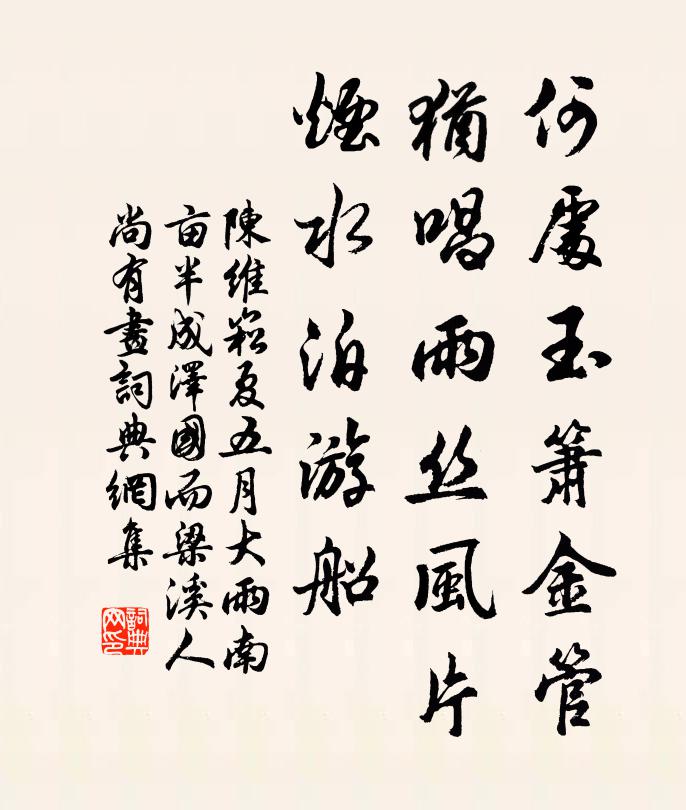 何處玉簫金管
猶唱雨丝風片
煙水泊游船
陳維崧夏五月大雨南
亩半成澤國而梁溪人
尚有畫詞典網集
詞典
网印